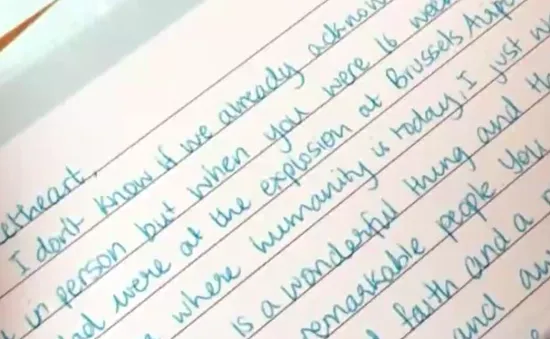 etheart,
I don't know if we already acknow
in person but when you were 16 wee
ad were at the explosion at Brussels Airpo
where humanity is today, I just w
is a wonderful thing and th
remarkable people you
faith and a
and aw